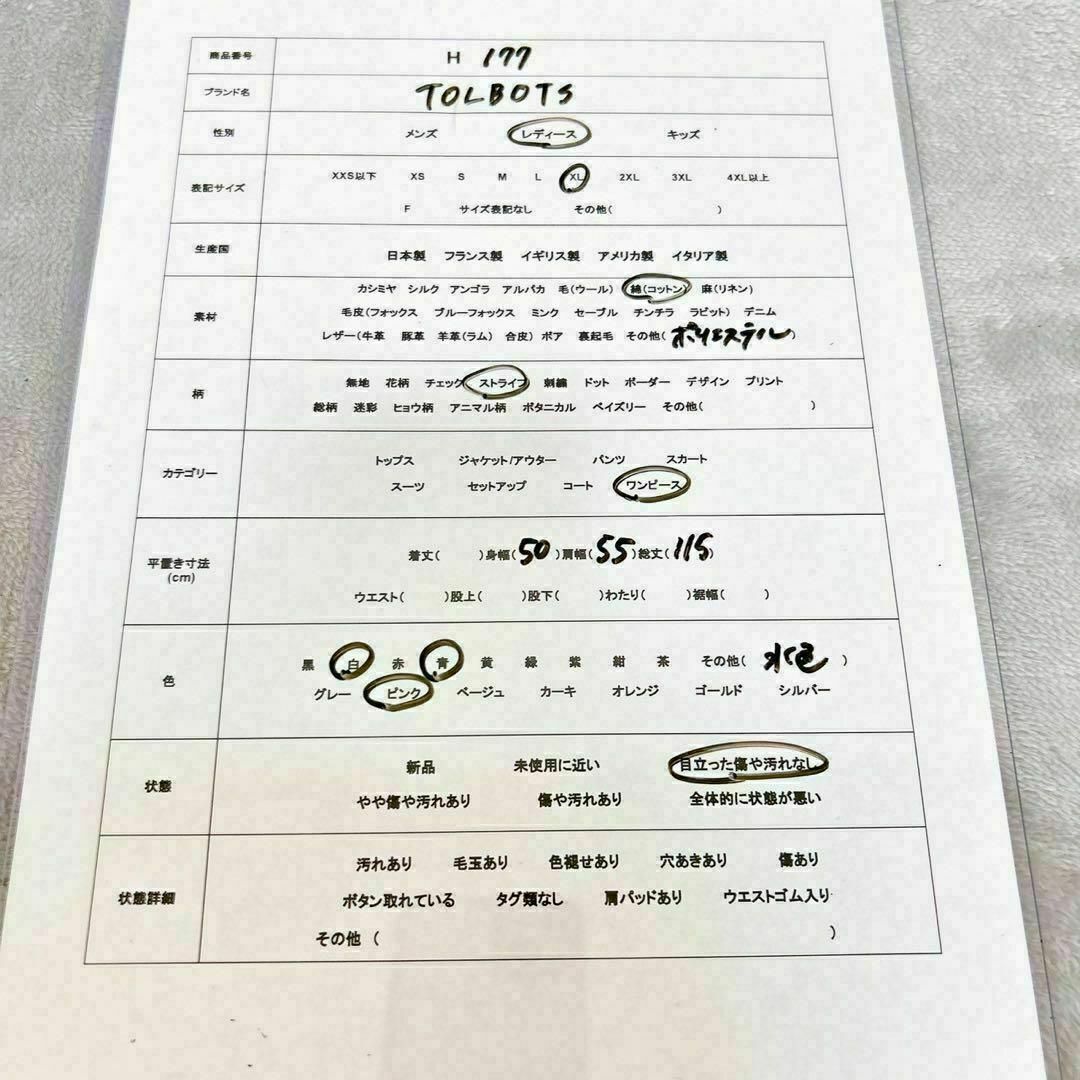 商品番号 H 177
ブランド名 TOLBOTS
性別 メンズ レディース キッズ
表記サイズ XXS以下 XS S M L XL 2XL 3XL 4XL以上
F サイズ表記なし その他( )
生産国 日本製 フランス製 イギリス製 アメリカ製 イタリア製
素材 カシミヤ シルク アンゴラ アルパカ 毛(ウール) 綿(コットン) 麻(リネン)
毛皮(フォックス ブルーフォックス ミンク セーブル チンチラ ラビット) デニム
レザー(牛革 豚革 羊革(ラム) 合皮) ボア 裏起毛 その他( ポリエステル )
柄 無地 花柄 チェック ストライプ 刺繍 ドット ボーダー デザイン プリント
総柄 迷彩 ヒョウ柄 アニマル柄 ボタニカル ペイズリー その他( )
カテゴリー トップス ジャケット/アウター パンツ スカート
スーツ セットアップ コート ワンピース
平置き寸法 着丈( )身幅( 50 )肩幅( 55 )総丈( 115 )
(cm)
ウエスト( )股上( )股下( )わたり( )裾幅( )
色 黒 白 赤 青 黄 緑 紫 紺 茶 その他( 水色 )
グレー ピンク ベージュ カーキ オレンジ ゴールド シルバー
状態 新品 未使用に近い 目立った傷や汚れなし
やや傷や汚れあり 傷や汚れあり 全体的に状態が悪い
状態詳細 汚れあり 毛玉あり 色褪せあり 穴あきあり 傷あり
ボタン取れている タグ類なし 肩パッドあり ウエストゴム入り
その他 ( )